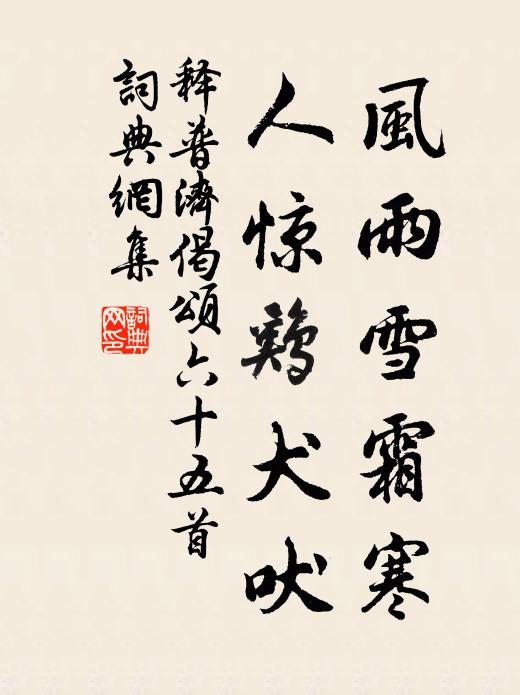 風雨雪霜寒
人惊鷄犬吠
释普濟偈頌六十五首
詞典網集
詞典网印